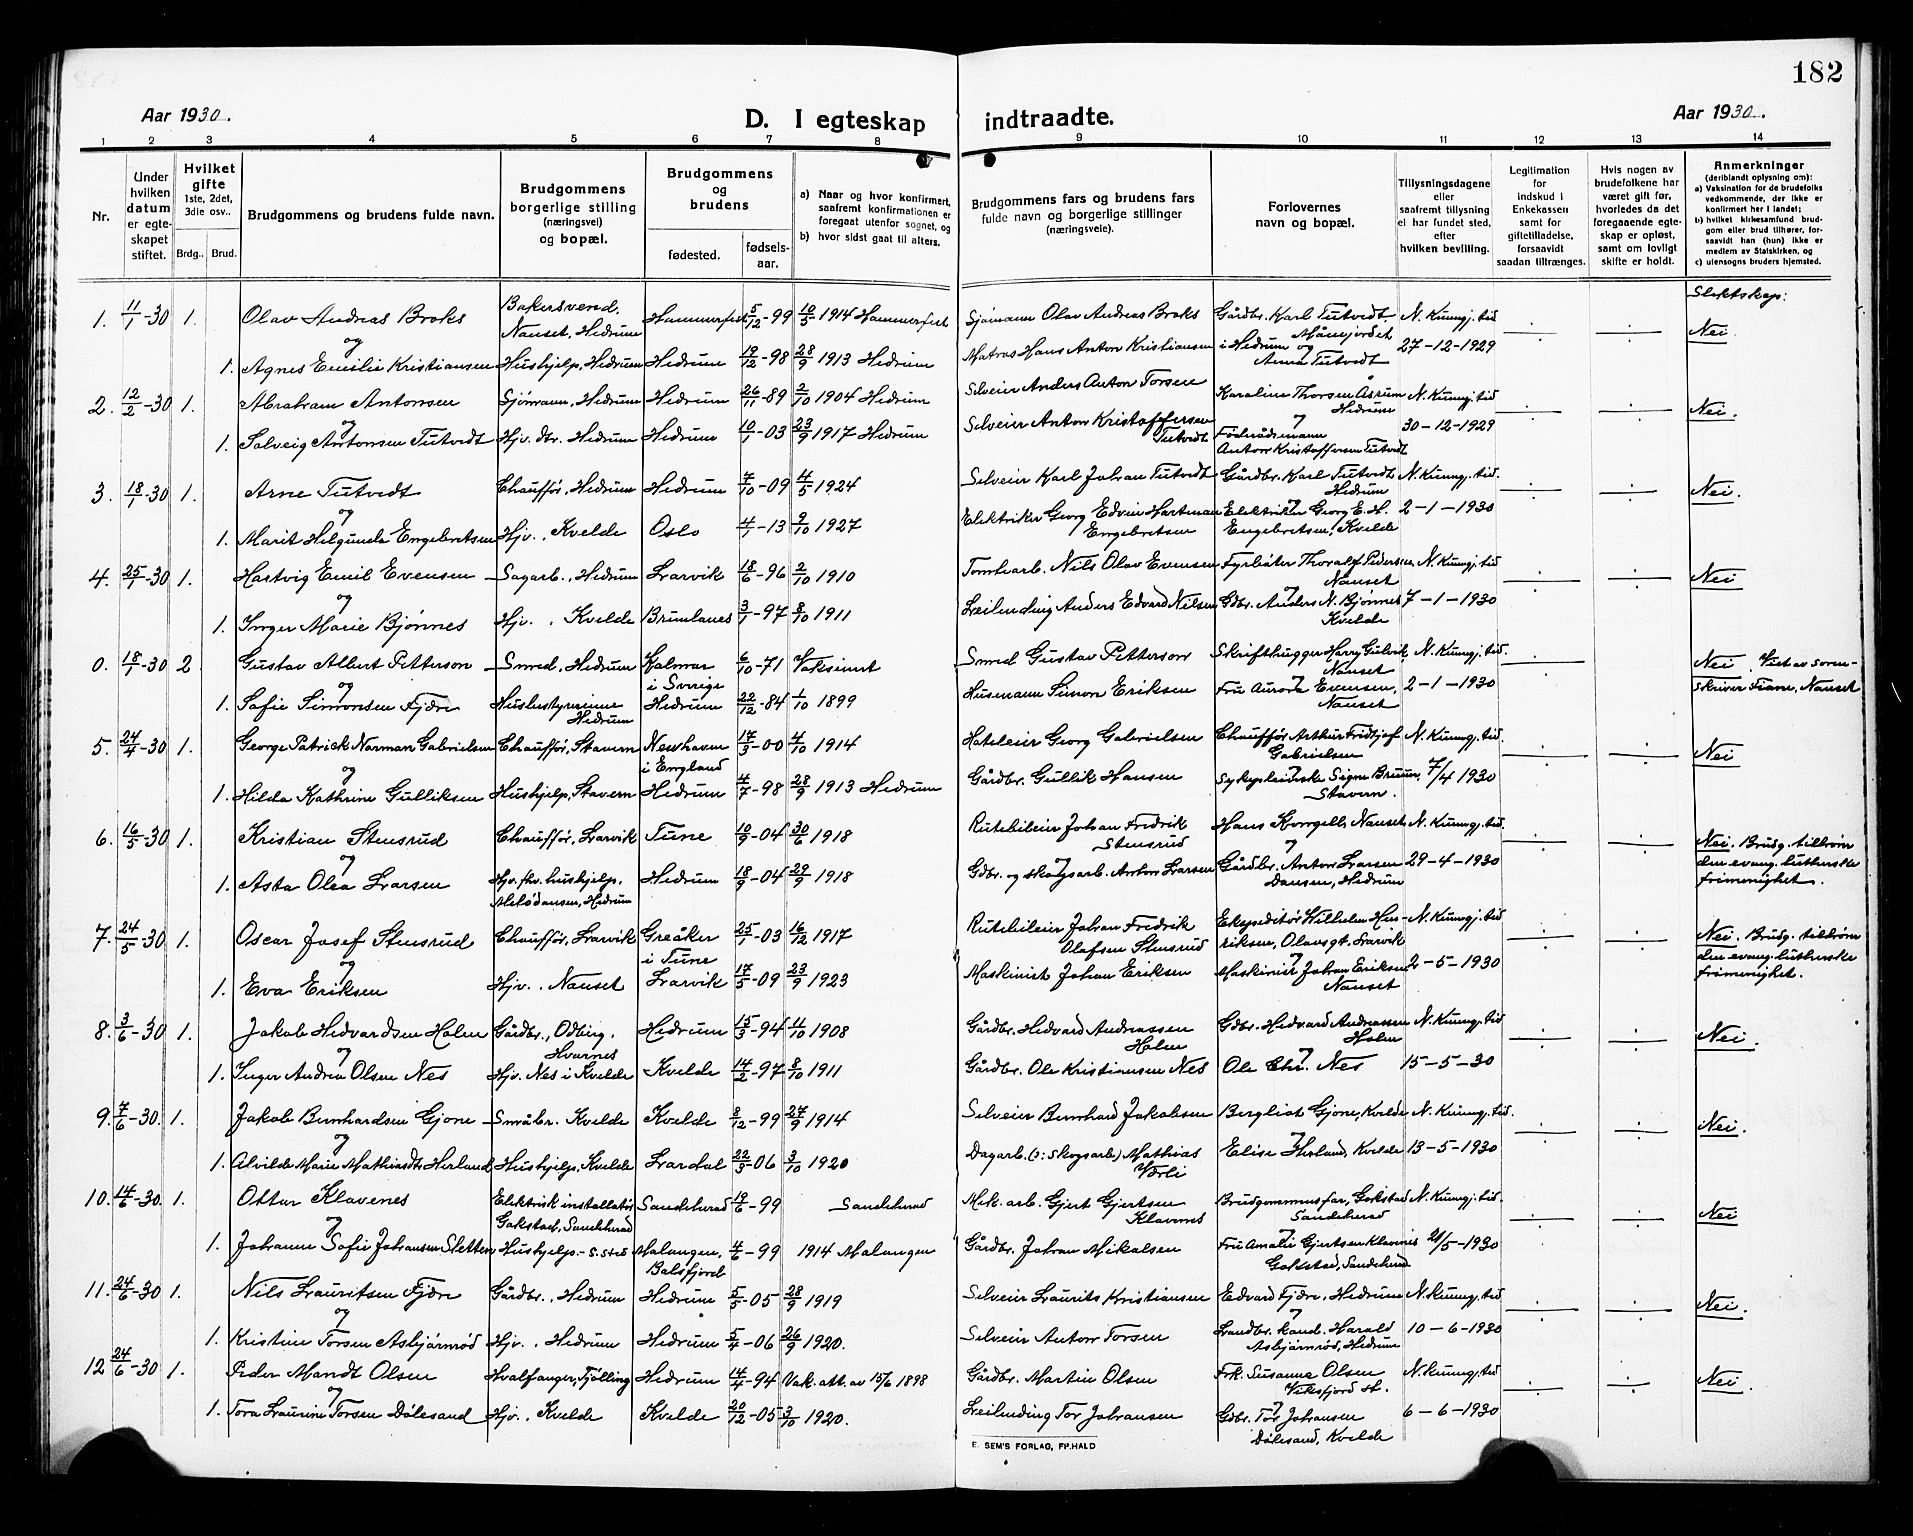 182
Aar 1930.
D. I egteskap indtraadte.
Aar 1930.
1 2 3 4 5 6 7 8 9 10 11 12 13 14
Nr.
Under hvilken datum er egteskapet stiftet.
Hvilket gifte 1ste, 2det, 3die osv..
Brdg.. Brud.
Brudgommens og brudens fulde navn.
Brudgommens borgerlige stilling (næringsvei) og bopæl.
Brudgommens og brudens
fødested.
fødselsaar.
a) Naar og hvor konfirmert, saafremt konfirmationen er foregaat utenfor sognet, og
b) hvor sidst gaat til alters.
Brudgommens fars og brudens fars fulde navn og borgerlige stillinger (næringsveie).
Forlovernes navn og bopæl.
Tillysningsdagene eller saafremt tillysning ei har fundet sted, efter hvilken bevilling.
Legitimation for indskud i Enkekassen samt for giftetilladelse, forsaavidt saadan tiltrænges.
Hvis nogen av brudefolkene har været gift før, hvorledes da det foregaaende egteskap er opløst, samt om lovligt skifte er holdt.
Anmerkninger (deriblandt oplysning om):
a) Vaksination for de brudefolks vedkommende, der ikke er konfirmert her i landet;
b) hvilket kirkesamfund brudgom eller brud tilhører, forsaavidt han (hun) ikke er medlem av Statskirken, og
c) utensogns bruders hjemsted.
Slektskap:
1. 11/1-30 1. Olav Andreas Broks Bakersvend, Nanset, Hedrum Hammerfest 5/12-99 10/5 1914 Hammerfest Sjømann Olav Andreas Broks Gårdbr. Karl Tutvedt. Månejordet N. Kunngj. tid Nei.
og
1. Agnes Emilie Kristiansen Hushjelp, Hedrum Hedrum 19/12-98 28/9 1913 Hedrum Matros Hans Anton Kristiansen i Hedrum og Anna Tutvedt 27-12-1929
2. 12/2-30 1. Abraham Antonsen Sjømann, Hedrum Hedrum 26/11-89 2/10 1904 Hedrum Selveier Anders Anton Torsen Karoline Thorsen Åsrum Hedrum N. Kunngj. tid Nei.
og
1. Solveig Antonsen Tutvedt Hjv. dtr. Hedrum Hedrum 10/1-03 23/9 1917 Hedrum Selveier Anton Kristoffersen Tutvedt Føderådsmann Anton Kristoffersen Tutvedt 30-12-1929
3. 18/1-30 1. Arne Tutvedt Chauffør, Hedrum Hedrum 7/10-09 4/5 1924 Selveier Karl Johan Tutvedt Gårdbr. Karl Tutvedt Hedrum N. Kunngj. tid. Nei.
og
1. Marit Helgunda Engebretsen Hjv., Kvelde Oslo 4/1-13 9/10 1927 Elektriker Georg Edvin Hartman Engebretsen Elektriker Georg E. H. Engebretsen, Kvelde 2-1-1930
4. 25/1-30 1. Hartvig Emil Evensen Sagarb., Hedrum Larvik 18/6-96 2/10 1910 Tomtearb. Nils Olav Evensen Fyrbøter Thoralf Pedersen, Nanset N. Kunngj. tid Nei
og
1. Inger Marie Bjønnes Hjv., Kvelde Brunlanes 3/1-97 8/10 1911 Leilending Anders Edvard Nilsen Gdbr. Anders N. Bjønnes Kvelde 7-1-1930
0. 18/1-30 2 Gustav Albert Petterson Smed, Hedrum Kalmar i Sverige 6/10-71 Vaksinert Smed Gustav Petterson Skrifthugger Harry Gulvik, Nanset N. Kunngj. tid. Nei. Viet av sorenskriver Fiane, Nanset
og
1. Sofie Simonsen Fjære Husbestyrerinne Hedrum Hedrum 22/12-84 1/10 1899 Husmann Simon Eriksen Fru Aurora Evensen, Nanset 2-1-1930
5. 24/4-30 1. George Patrick Norman Gabrielsen Chauffør, Stavern Newhaven i England 17/3-00 4/10 1914 Hoteleier Georg Gabrielsen Chauffør Arthur Fridtjof Gabrielsen N. Kunngj. tid. Nei
og
1. Hilda Kathrine Gulliksen Hushjelp, Stavern Hedrum 4/7-98 28/9 1913 Hedrum Gårdbr. Gullik Hansen Sykepleierske Signe Bruun, Stavern. 7/4 1930
6. 16/5-30 1. Kristian Stensrud Chauffør, Larvik Tune 10/9-04 30/6 1918 Rutebileier Johan Fredrik Stensrud Hans Kongelf, Nanset N. Kunngj. tid. Nei. Brudg. tilhører den evang. lutherske frimenighet.
og
1. Asta Olea Larsen Hjv. fhv. hushjelp. Hedrum 18/9-04 29/9 1918 Gdbr. og skogsarb. Anton Larsen Gårdbr. Anton Larsen Dansen, Hedrum 29-4-1930
7. 24/5-30 1. Oscar Josef Stensrud Chauffør, Larvik Greåker i Tune 25/1-03 16/12 1917 Rutebileier Johan Fredrik Olafsen Stensrud Ekspeditør Wilhelm Henriksen, Olavsgt. Larvik N. Kunngj. tid Nei. Brudg. tilhører den evang. lutherske frimenighet.
og
1. Eva Eriksen Hjv., Nanset Larvik 17/5-09 23/9 1923 Maskinist Johan Eriksen Maskinist Johan Eriksen Nanset 2-5-1930
8. 3/6-30 1. Jakob Hedvardsen Holm Gårdbr., Odberg, Hvarnes Hedrum 15/3-94 11/10 1908 Gårdbr. Hedvard Andreassen Holm Gdbr. Hedvard Andreassen Holm N. Kunngj. tid Nei.
og
1. Inger Andrea Olsen Nes Hjv. Nes i Kvelde Kvelde 14/2-97 8/10 1911 Gårdbr. Ole Kristiansen Nes Ole Chr. Nes 15-5-30
9. 7/6-30. 1. Jakob Bernhardsen Gjone Småbr. Kvelde Kvelde 8/12-99 27/9 1914 Selveier Bernhard Jakobsen Bergliot Gjone, Kvelde N. Kunngj. tid. Nei.
og
1. Alvilde Marie Mathiasdtr Herland Hushjelp, Kvelde Lardal 22/3-06 3/10 1920 Dagarb. (ɔ: skogsarb.) Mathias Værli Elise Herland, Kvelde 13-5-1930
10. 14/6-30. 1. Ottar Klavenes Elektrisk installatør Gokstad, Sandeherad Sandeherad 19/6-99 Sandeherad Mek. arb. Gjert Gjertsen Klavenes Brudgommens far, Gokstad Sandeherad N. Kunngj. tid. Nei
og
1. Johanne Sofie Johansen Sletten Hushjelp - s. sted Malangen, Balsfjord 4/6-99 1914 Malangen Gårdbr. Johan Mikalsen Fru Amalie Gjertsen Klavenes Gokstad, Sandeherad 21/5-1930
11. 24/6-30 1. Nils Lauritsen Fjære Gårdbr., Hedrum Hedrum 5/5-05 28/9 1919 Selveier Laurits Kristiansen Edvard Fjære, Hedrum N. Kunngj. tid Nei.
og
1. Kristine Torsen Asbjørnrød Hjv., Hedrum Hedrum 5/4-06 26/9 1920. Selveier Anton Torsen Landbr. kand. Harald Asbjørnrød, Hedrum 10-6-1930
12 24/6-30 1. Peder Mandt Olsen Hvalfanger, Tjølling Hedrum 14/4-94 Vak. att. av 15/6 1898 Gårdbr. Martin Olsen Frk. Susanne Olsen Viksfjord st. N. Kunngj. tid Nei.
og
1. Tora Laurine Torsen Dølesand Hjv., Kvelde Kvelde 20/12-05 3/10 1920. Leilending Tor Johansen Gdbr. Tor Johansen Dølesand, Kvelde 6-6-1930
E. SEM'S FORLAG, FR.HALD